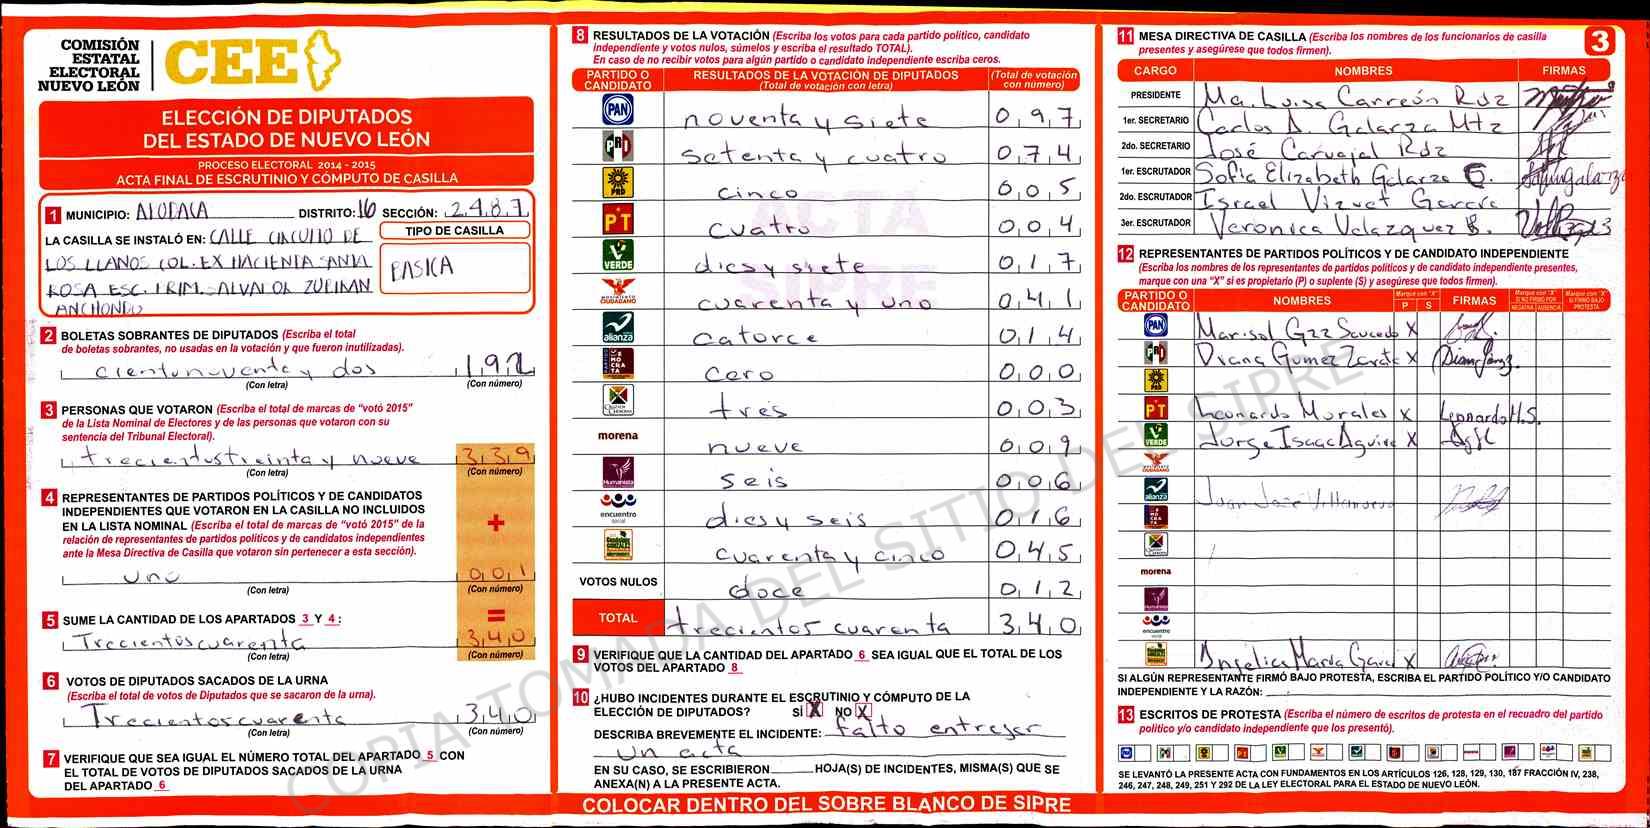 COMISIÓN
ESTATAL
ELECTORAL
NUEVO LEÓN
CEE
ELECCIÓN DE DIPUTADOS
DEL ESTADO DE NUEVO LEÓN
PROCESO ELECTORAL 2014 - 2015
ACTA FINAL DE ESCRUTINIO Y CÓMPUTO DE CASILLA
1 MUNICIPIO: APODACA DISTRITO: 16 SECCIÓN: 2487
LA CASILLA SE INSTALÓ EN: CALLE CIRCUITO DE
LOS LLANOS COL. EX HACIENTA SANTA
ROSA ESC. PRIM.
ANCHONDO
TIPO DE CASILLA
BASICA
2 BOLETAS SOBRANTES DE DIPUTADOS (Escriba el total
de boletas sobrantes, no usadas en la votación y que fueron inutilizadas).
ciento noventa y dos 192
(Con letra) (Con número)
3 PERSONAS QUE VOTARON (Escriba el total de marcas de "votó 2015"
de la Lista Nominal de Electores y de las personas que votaron con su
sentencia del Tribunal Electoral).
trecientos treinta y nueve 339
(Con letra) (Con número)
4 REPRESENTANTES DE PARTIDOS POLÍTICOS Y DE CANDIDATOS
INDEPENDIENTES QUE VOTARON EN LA CASILLA NO INCLUIDOS
EN LA LISTA NOMINAL (Escriba el total de marcas de "votó 2015" de la
relación de representantes de partidos políticos y de candidatos independientes
ante la Mesa Directiva de Casilla que votaron sin pertenecer a esta sección).
+
uno 001
(Con letra) (Con número)
5 SUME LA CANTIDAD DE LOS APARTADOS 3 Y 4: =
Trecientos cuarenta 340
(Con letra) (Con número)
6 VOTOS DE DIPUTADOS SACADOS DE LA URNA
(Escriba el total de votos de Diputados que se sacaron de la urna).
Trecientos cuarenta 340
(Con letra) (Con número)
7 VERIFIQUE QUE SEA IGUAL EL NÚMERO TOTAL DEL APARTADO 5 CON
EL TOTAL DE VOTOS DE DIPUTADOS SACADOS DE LA URNA
DEL APARTADO 6
8 RESULTADOS DE LA VOTACIÓN (Escriba los votos para cada partido político, candidato
independiente y votos nulos, súmelos y escriba el resultado TOTAL).
En caso de no recibir votos para algún partido o candidato independiente escriba ceros.
PARTIDO O CANDIDATO RESULTADOS DE LA VOTACIÓN DE DIPUTADOS (Total de votación con letra) (Total de votación con número)
PAN noventa y siete 097
PRI setenta y cuatro 074
PRD cinco 005
PT cuatro 004
VERDE dies y siete 017
MOVIMIENTO CIUDADANO cuarenta y uno 041
alianza catorce 014
DEMOCRATA cero 000
tres 003
morena nueve 009
Humanista seis 006
encuentro social dies y seis 016
cuarenta y cinco 045
VOTOS NULOS doce 012
TOTAL trecientos cuarenta 340
9 VERIFIQUE QUE LA CANTIDAD DEL APARTADO 6 SEA IGUAL QUE EL TOTAL DE LOS
VOTOS DEL APARTADO 8
10 ¿HUBO INCIDENTES DURANTE EL ESCRUTINIO Y CÓMPUTO DE LA
ELECCIÓN DE DIPUTADOS? SÍ X NO X
DESCRIBA BREVEMENTE EL INCIDENTE: falto entregar
un acta
EN SU CASO, SE ESCRIBIERON HOJA(S) DE INCIDENTES, MISMA(S) QUE SE
ANEXA(N) A LA PRESENTE ACTA.
COLOCAR DENTRO DEL SOBRE BLANCO DE SIPRE
11 MESA DIRECTIVA DE CASILLA (Escriba los nombres de los funcionarios de casilla
presentes y asegúrese que todos firmen).
3
CARGO NOMBRES FIRMAS
PRESIDENTE Ma. Luisa Carreón Rdz
1er. SECRETARIO Carlos D. Galarza Mtz
2do. SECRETARIO José Carvajal Rdz
1er. ESCRUTADOR Sofia Elizabeth Galarza G.
2do. ESCRUTADOR Israel Vizuet Garcia
3er. ESCRUTADOR Veronica Velazquez
12 REPRESENTANTES DE PARTIDOS POLÍTICOS Y DE CANDIDATO INDEPENDIENTE
(Escriba los nombres de los representantes de partidos políticos y de candidato independiente presentes,
marque con una "X" si es propietario (P) o suplente (S) y asegúrese que todos firmen).
PARTIDO O CANDIDATO NOMBRES Marque con "X" P S FIRMAS Marque con "X" SI NO FIRMÓ POR NEGATIVA AUSENCIA Marque con "X" SI FIRMÓ BAJO PROTESTA
PAN Marisol Gzz Saucedo X
PRI Diana Gomez Zarate X
PRD
PT Leonardo Morales X Leonardo M.S.
VERDE Jorge Isaac Aguirre X
MOVIMIENTO CIUDADANO
alianza Juan José Villanueva
morena
Humanista
encuentro social
Angelica Maria Garci X
SI ALGÚN REPRESENTANTE FIRMÓ BAJO PROTESTA, ESCRIBA EL PARTIDO POLÍTICO Y/O CANDIDATO
INDEPENDIENTE Y LA RAZÓN:
13 ESCRITOS DE PROTESTA (Escriba el número de escritos de protesta en el recuadro del partido
político y/o candidato independiente que los presentó).
SE LEVANTÓ LA PRESENTE ACTA CON FUNDAMENTOS EN LOS ARTÍCULOS 126, 128, 129, 130, 187 FRACCIÓN IV, 238,
246, 247, 248, 249, 251 Y 292 DE LA LEY ELECTORAL PARA EL ESTADO DE NUEVO LEÓN.
ACTA
SIPRE
COPIA TOMADA DEL SITIO DEL SIPRE